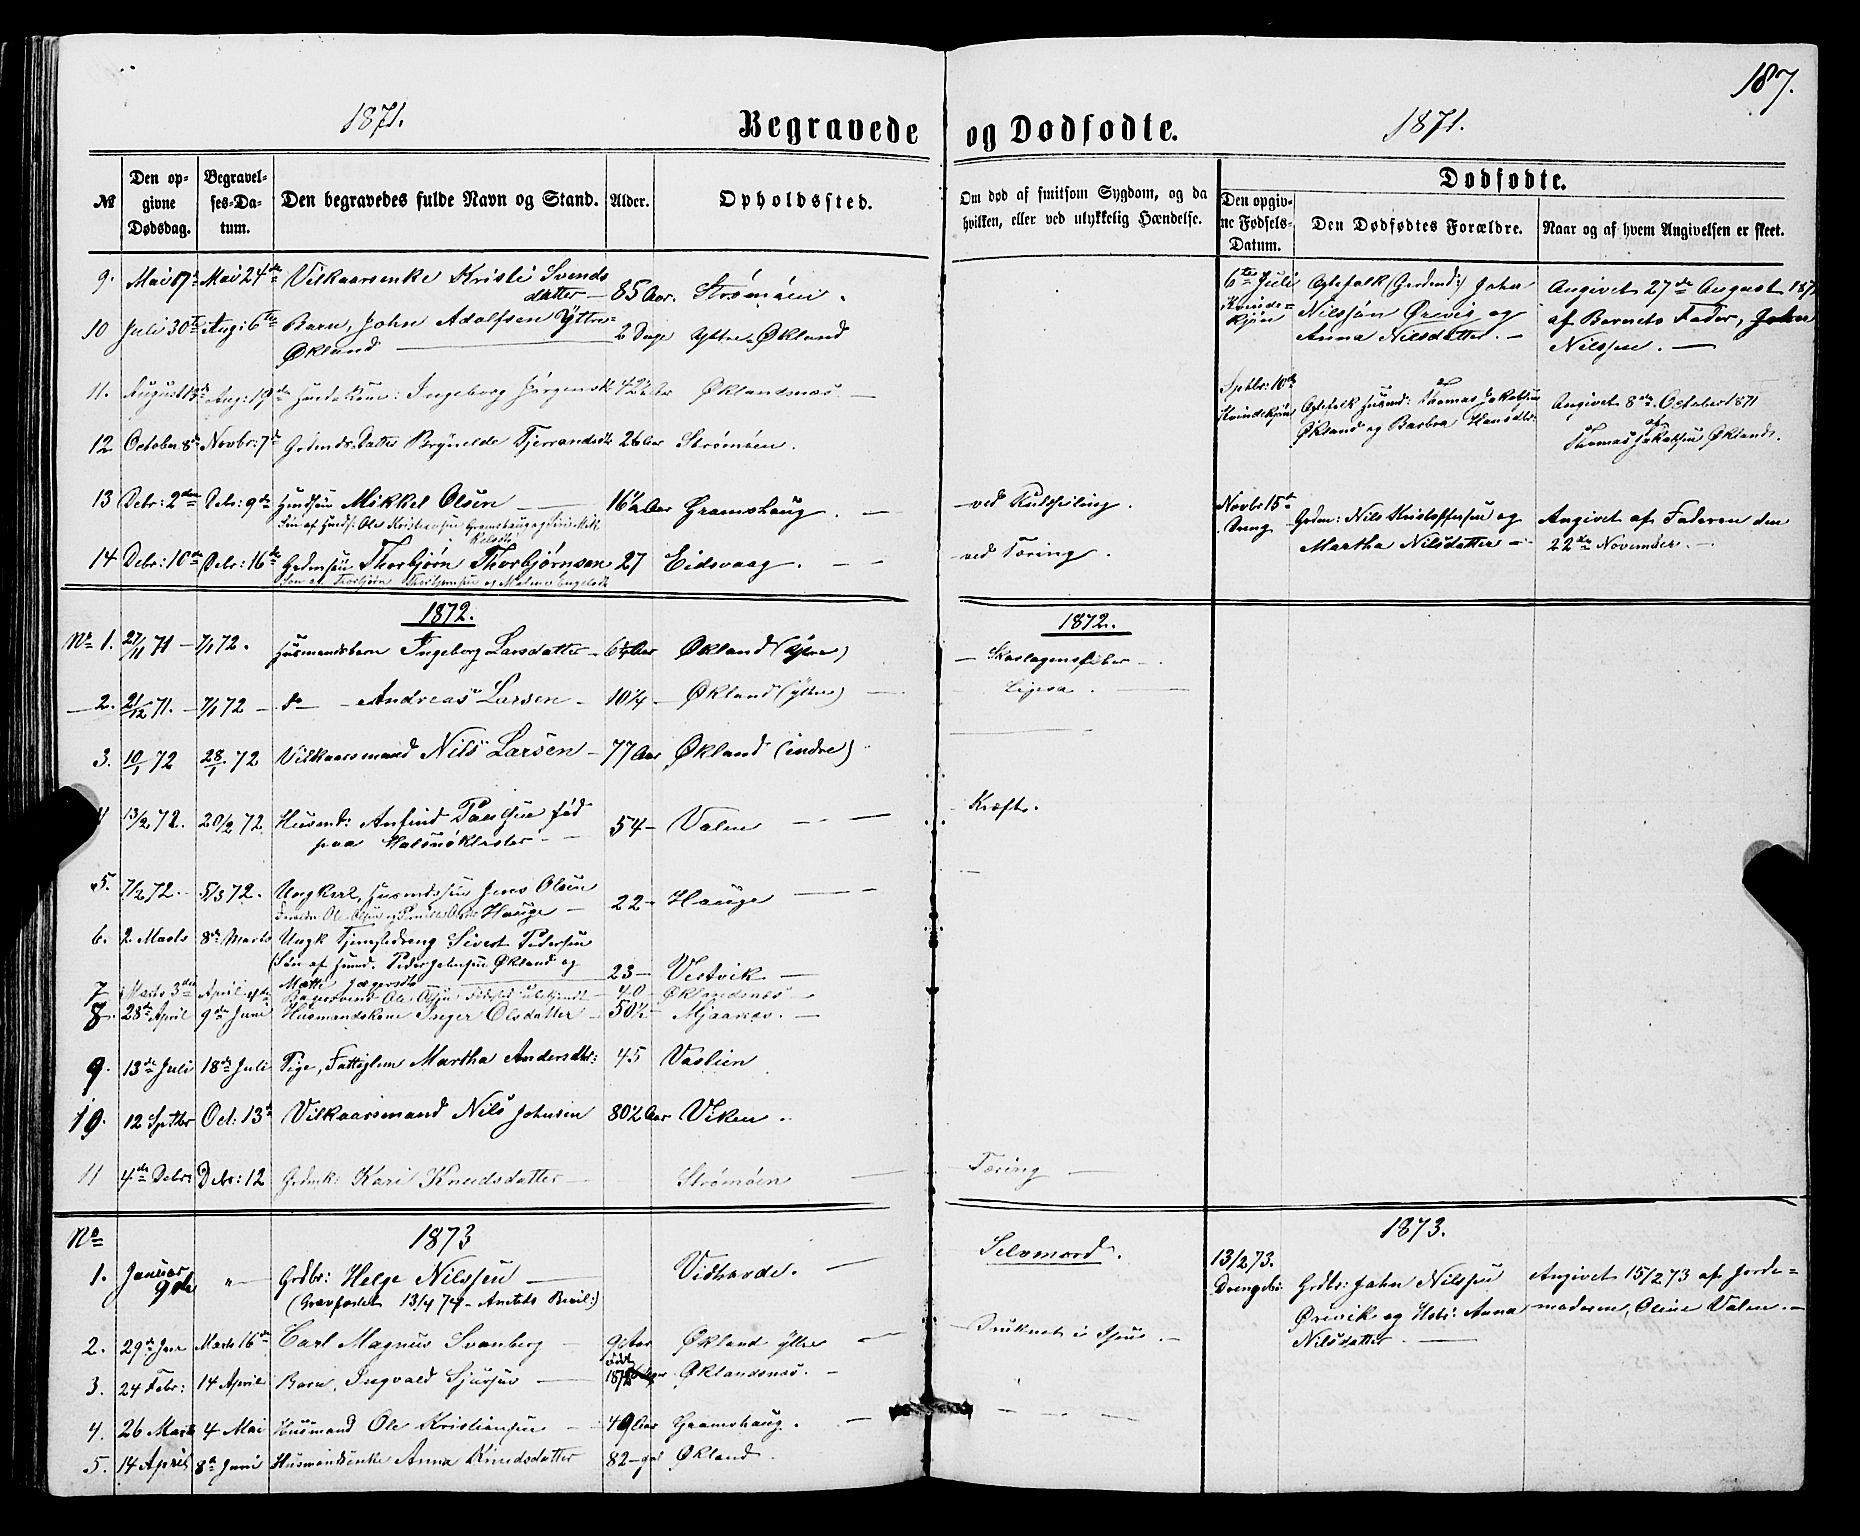 187.
1871.
Begravede og Dødfødte.
1871.
№
Den opgivne Dødsdag.
Begravelses-Datum.
Den begravedes fulde Navn og Stand.
Alder.
Opholdssted.
Om død af smitsom Sygdom, og da hvilken, eller ved ulykkelig Hændelse.
Dødfødte.
Den opgivne Fødsels-Datum.
Den Dødfødtes Forældre.
Naar og af hvem Angivelsen er skeet.
9. Mai 17de Mai 24de Vilkaarsenke Kristi Svends
datter 85 Aar. Strømøen.
10 Juli 30te Aug: 6te Barn, John Adolfsen Yttre
Økland 2 Dage Yttre Økland
11. August 13de Aug: 19de Ingeborg Jørgensdt 42½ Aar Øklandsnæs.
12 October 8de Novbr: 7de Grdmds Datter Brynelde Tjerrandsdt 26 Aar Strømøen.
13 Debr: 2den Debr: 9de Husdsøn Mikkel Olsen 16½ Aar Gramshaug. ved Kulseiling.
Søn af Husd: Ole Kristiansen Gramshaug og
14 Debr: 10de Debr: 16de Grdmsøn Thorbjørn Thorbjørnsen 27 Eidsvaag. ved Tæring.
Søn af Thorbjørn Thorbjørnsen og
6te Juli Kvinde-
kjøn
Ægtefolk (Grdmd:) John
Nilssøn Ørevig og
Anna Nilsdatter.
Angivet 27de August 187
af Barnets Fader, John
Nilssen.
Sptbr: 10de
Kvindekjøn
Ægtefolk Husmd: Thomas Jakobsen
Økland og Barbra Hansdtr.
Angivet 8de October 1871
af
Thomas Jakobsen Økland.
Novbr 15de
Dreng
Grdm: Nils Kristoffersen og
Martha Nilsdatter
Angivet af Faderen den
22de November.
1872.
1872.
No 1. 27/11 71 7/1 72. Husmandsbarn Ingeborg Larsdatter 6¼ Aar Økland (Ytre) Skarlagensfeber
2. 21/12 71. 7/1 72 do Andreas Larsen 10¼ Økland (ytre)
3. 10/1 72 28/1 72 Vilkaarsmand Nils Larsen 77 Aar Økland (indre)
4 13/2 72. 20/2 72 Husmd: Anfind Paulsen fød
paa Halsnøkloster 54 Valen Kræft.
5. 7/2 72. 5/3 72. Ungkarl, Husmdssøn Jens Olsen
Hauge 22 Hauge
6. 2 Marts 8de Marts Ungk Tjenestedreng Sivert Pedersen
(Søn af Husmd. Peder Johnsen Økland og
Mætte Jægersdt 23 Vestvik
7 Marts 3die April Bagersvend Ole Olsen Fødested ubekjendt 40 Øklandsnæs
8. 28de April 9de Juni Husmandskone Inger Olsdatter 50½ Mjaanæs.
9. 13de Juli 18de Juli Pige, Fattiglem Martha Andersdtr: 45 Vaslien
10. 12 Sptbr Oct: 13de Vilkaarsmand Nils Johnsen 80½ Aar Viken.
11 4de Debr: Debr: 12 Grdmk: Kari Knudsdatter Strømøen Tæring
No 1873
1873.
1. Januar
9de " Grdbr: Helge Nilssen Vidhovde. Selvmord.
(Gravfæstet 13/4 74 - Amtets Bevil:)
2. 29de Jan Marts 16de Carl Magnus Svanberg 9 Aar Økland ytre Druknet i
3. 24 Febr: 14 April Barn, Ingvald Sjursen født
187 Øklandsnæs.
4. 26 Marts 4 Mai Husmand Ole Kristiansen 49 Aar Gramshaug.
5. 14 April 8de Juni Husmandsenke Anna Knudsdatter 82 Økland.
13/2 73.
Drengebr
Grdbr: John Nilssen
Ørevik og Hstr: Anna
Nilsdatter.
Angivet 15/2 73 af Jorde-
moderen, Oline Valen.